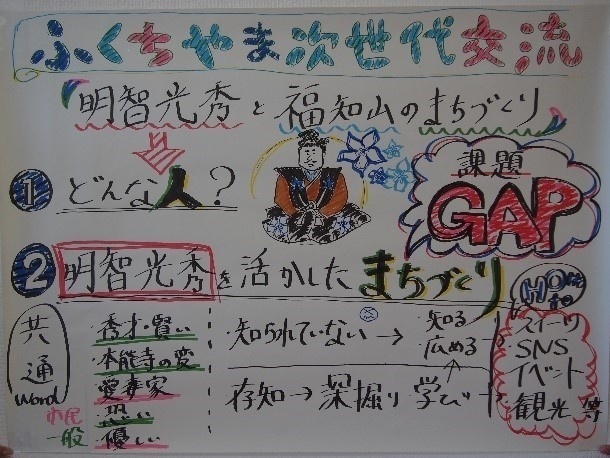 ふくちやま次世代交流
明智光秀と福知山のまちづくり
① どんな人?
課題
GAP
② 明智光秀を活かしたまちづくり
How to
共通
word
市民
一般
秀才・賢い
本能寺の変
愛妻家
恐い
優しい
知られていない → 知る
広める
存知 → 深掘り 学び →
スイーツ
SNS
イベント
観光 等